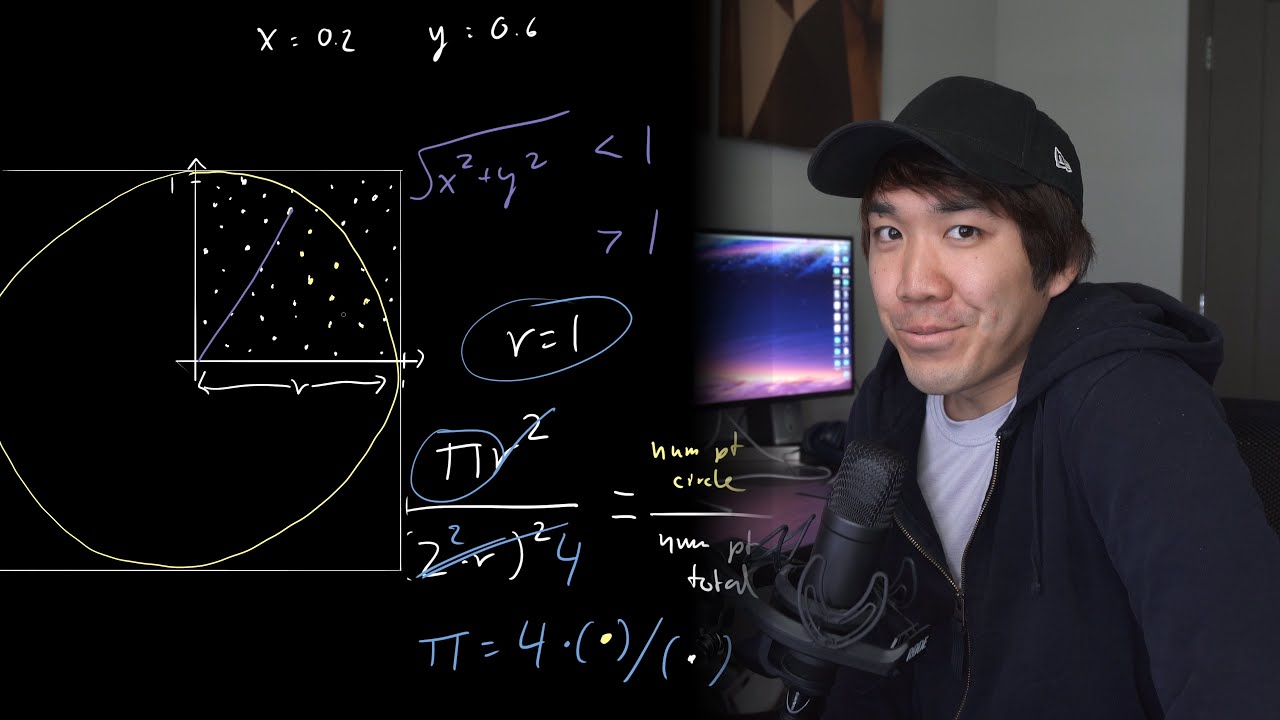 x = 0.2 y = 0.6
1
√x²+y² < 1
> 1
r = 1
r
1
πr²
(2² · r)² 4
=
num pt
circle
num pt
total
π = 4 · (•) / (•)
RODE